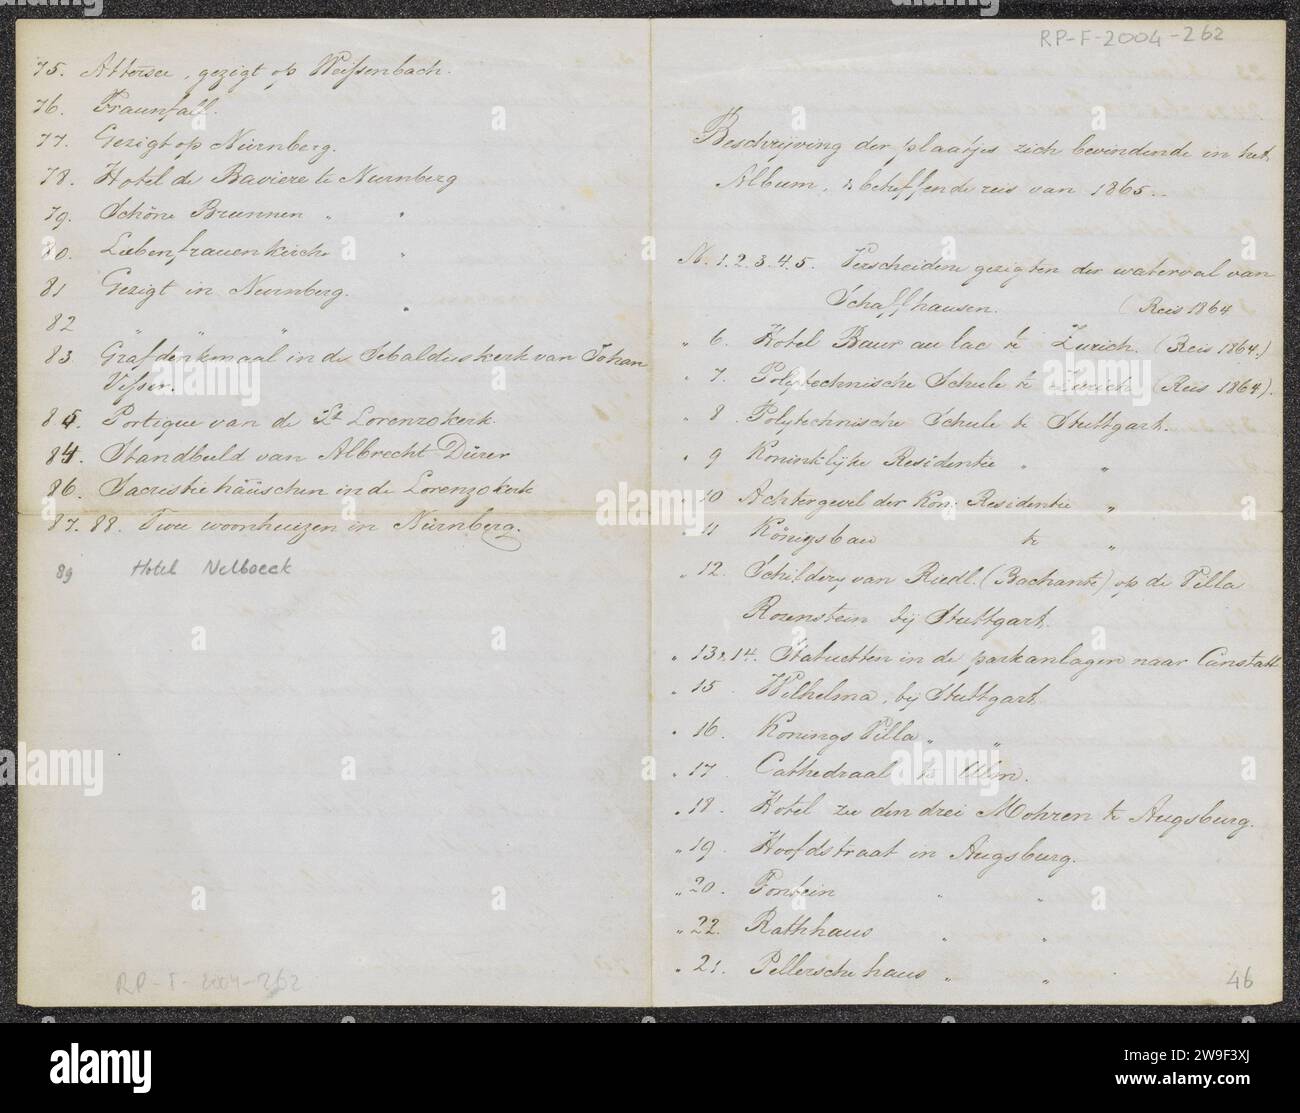 75. Attersee, gezigt op Weissenbach.
76. Traunfall.
77. Gezigt op Nürnberg.
78. Hotel de Baviere te Nurnberg
79. Schöne Brunnen " "
80. Liebenfrauenkirche "
81 Gezigt in Nurnberg.
82 " " "
83 Grafdenkmaal in de Sebalduskerk van Johan
Visser.
85. Portique van de St Lorenzokerk.
84. Standbeeld van Albrecht Dürer
86. Sacristie häuschen in de Lorenzokerk
87. 88. Twee woonhuizen in Nürnberg.
89 Hotel Nelboeck
RP-F-2004-262
RP-F-2004-262
Beschrijving der plaatjes zich bevindende in het
Album, betreffende reis van 1865.
N. 1. 2. 3. 4. 5. Verscheidene gezigten der waterval van
Schaffhausen. (Reis 1864
" 6. Hotel Baur au lac te Zurich. (Reis 1864.)
" 7. Polytechnische Schule te Zurich (Reis 1864).
" 8. Polytechnische Schule te Stuttgart.
" 9 Koninklijke Residentie " "
" 10 Achtergevel der Kon. Residentie "
" 11 Königsbau te "
" 12. Schildery van Riedl. (Bachante) op de Villa
Rozenstein bij Stuttgart.
" 13 & 14. Statuetten in de parkanlagen naar Canstatt
" 15 Wilhelma, bij Stuttgart
" 16. Konings Villa " "
" 17 Cathedraal te Ulm.
" 18 Hotel zu den drei Mohren te Augsburg.
" 19. Hoofdstraat in Augsburg.
" 20. Fontein " "
" 22. Rathhaus " "
" 21. Pellersche haus " "
46
alamy
Image ID: 2W9F3XJ
www.alamy.com